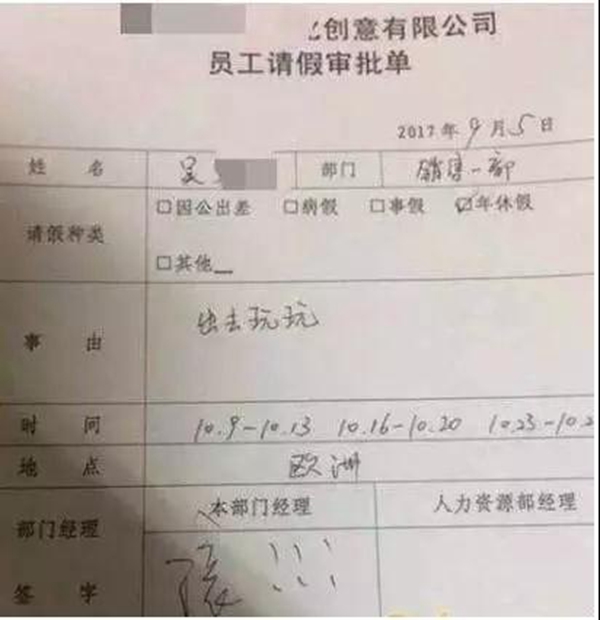 创意有限公司
员工请假审批单
2017年9月5日
姓 名 吴 部门 销售一部
请假种类 □因公出差 □病假 □事假 ☑年休假
□其他__
事 由 出去玩玩
时 间 10.9-10.13 10.16-10.20 10.23-10.2
地 点 欧洲
部门经理 本部门经理 人力资源部经理
签 字